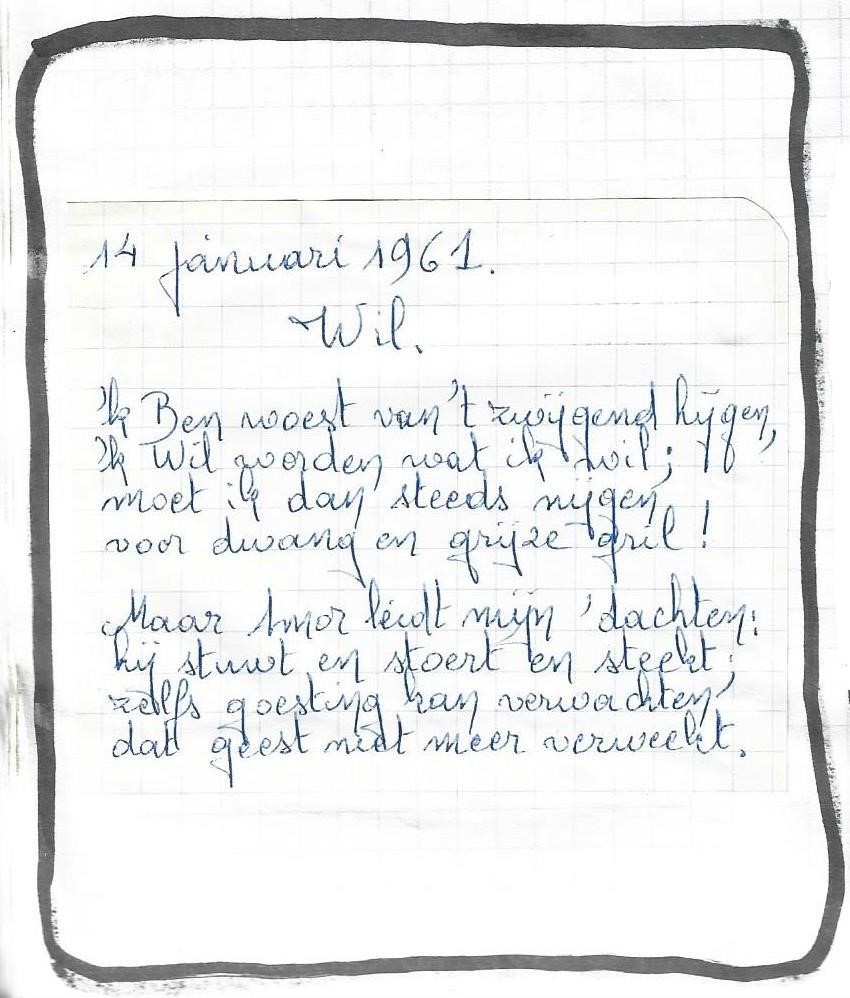 14 januari 1961.
Wil.
'k Ben woest van 't zwijgend hijgen,
'k Wil worden wat ik wil;
moet ik dan steeds nijgen
voor dwang en grijze gril!
Maar Amor leidt mijn 'dachten:
hij stuwt en stoert en steekt;
zelfs goesting kan verwachten
dat geest niet meer verweekt.